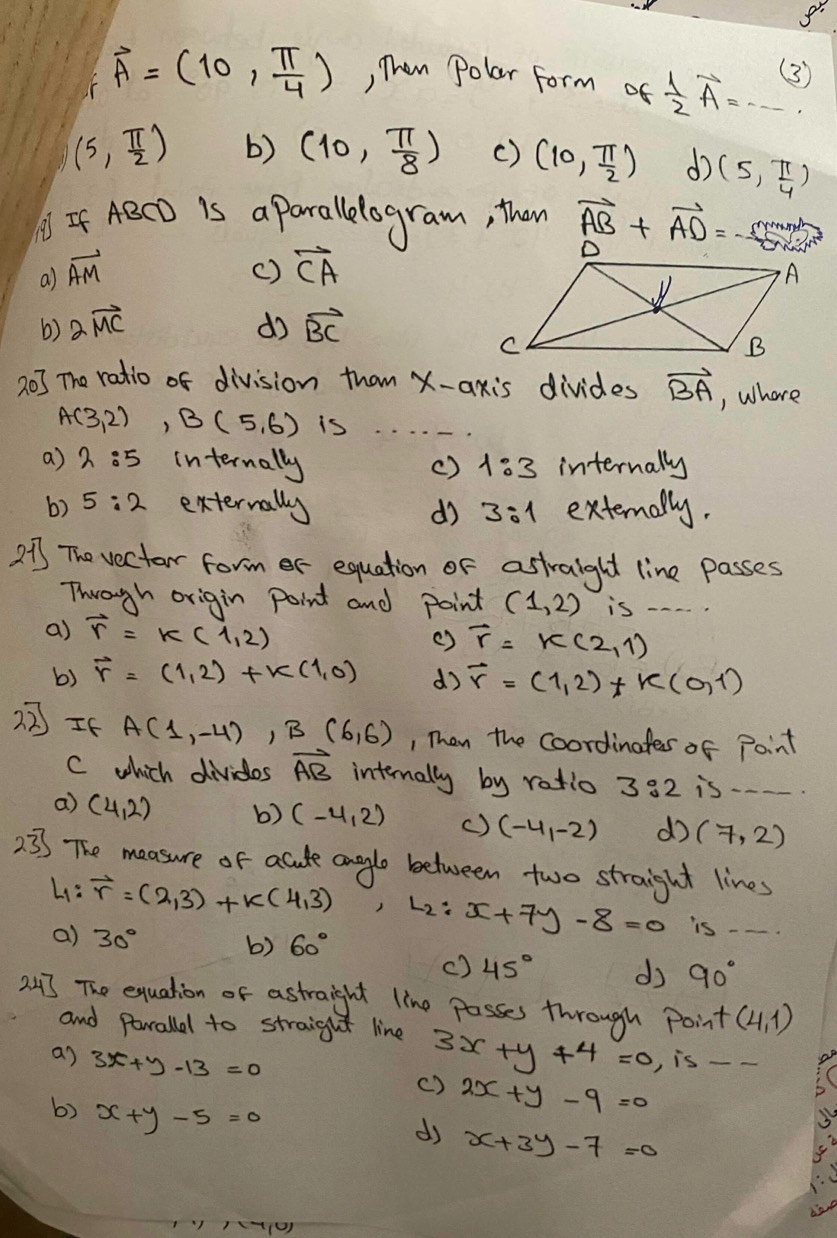 (3)
f A = (10 , π/4) , Then Polar Form of 1/2 A = ....
) (5, π/2) b) (10, π/8) c) (10, π/2) d) (5, π/4)
19] If ABCD is a Parallelogram, then AB + AD = ..
a) AM c) CA
b) 2MC d) BC
D A M C B
20] The ratio of division then X-axis divides BA, where
A(3,2) , B(5,6) is ......
a) 2:5 internally c) 1:3 internally
b) 5:2 externally d) 3:1 externally.
21] The vector form of equation of a straight line passes
Through origin point and point (1,2) is ....
a) r = K(1,2) c) r = K(2,1)
b) r = (1,2) + K(1,0) d) r = (1,2) + K(0,1)
22] If A(1,-4) , B(6,6) , Then the Coordinates of Point
C which divides AB internally by ratio 3:2 is .....
a) (4,2) b) (-4,2) c) (-4,-2) d) (7,2)
23] The measure of acute angle between two straight lines
L1: r = (2,3) + K(4,3) , L2: x+7y-8=0 is ....
a) 30° b) 60° c) 45° d) 90°
24] The equation of a straight line Passes through Point (4,1)
and Parallel to straight line 3x+y+4=0, is --
a) 3x+y-13=0 c) 2x+y-9=0
b) x+y-5=0 d) x+3y-7=0